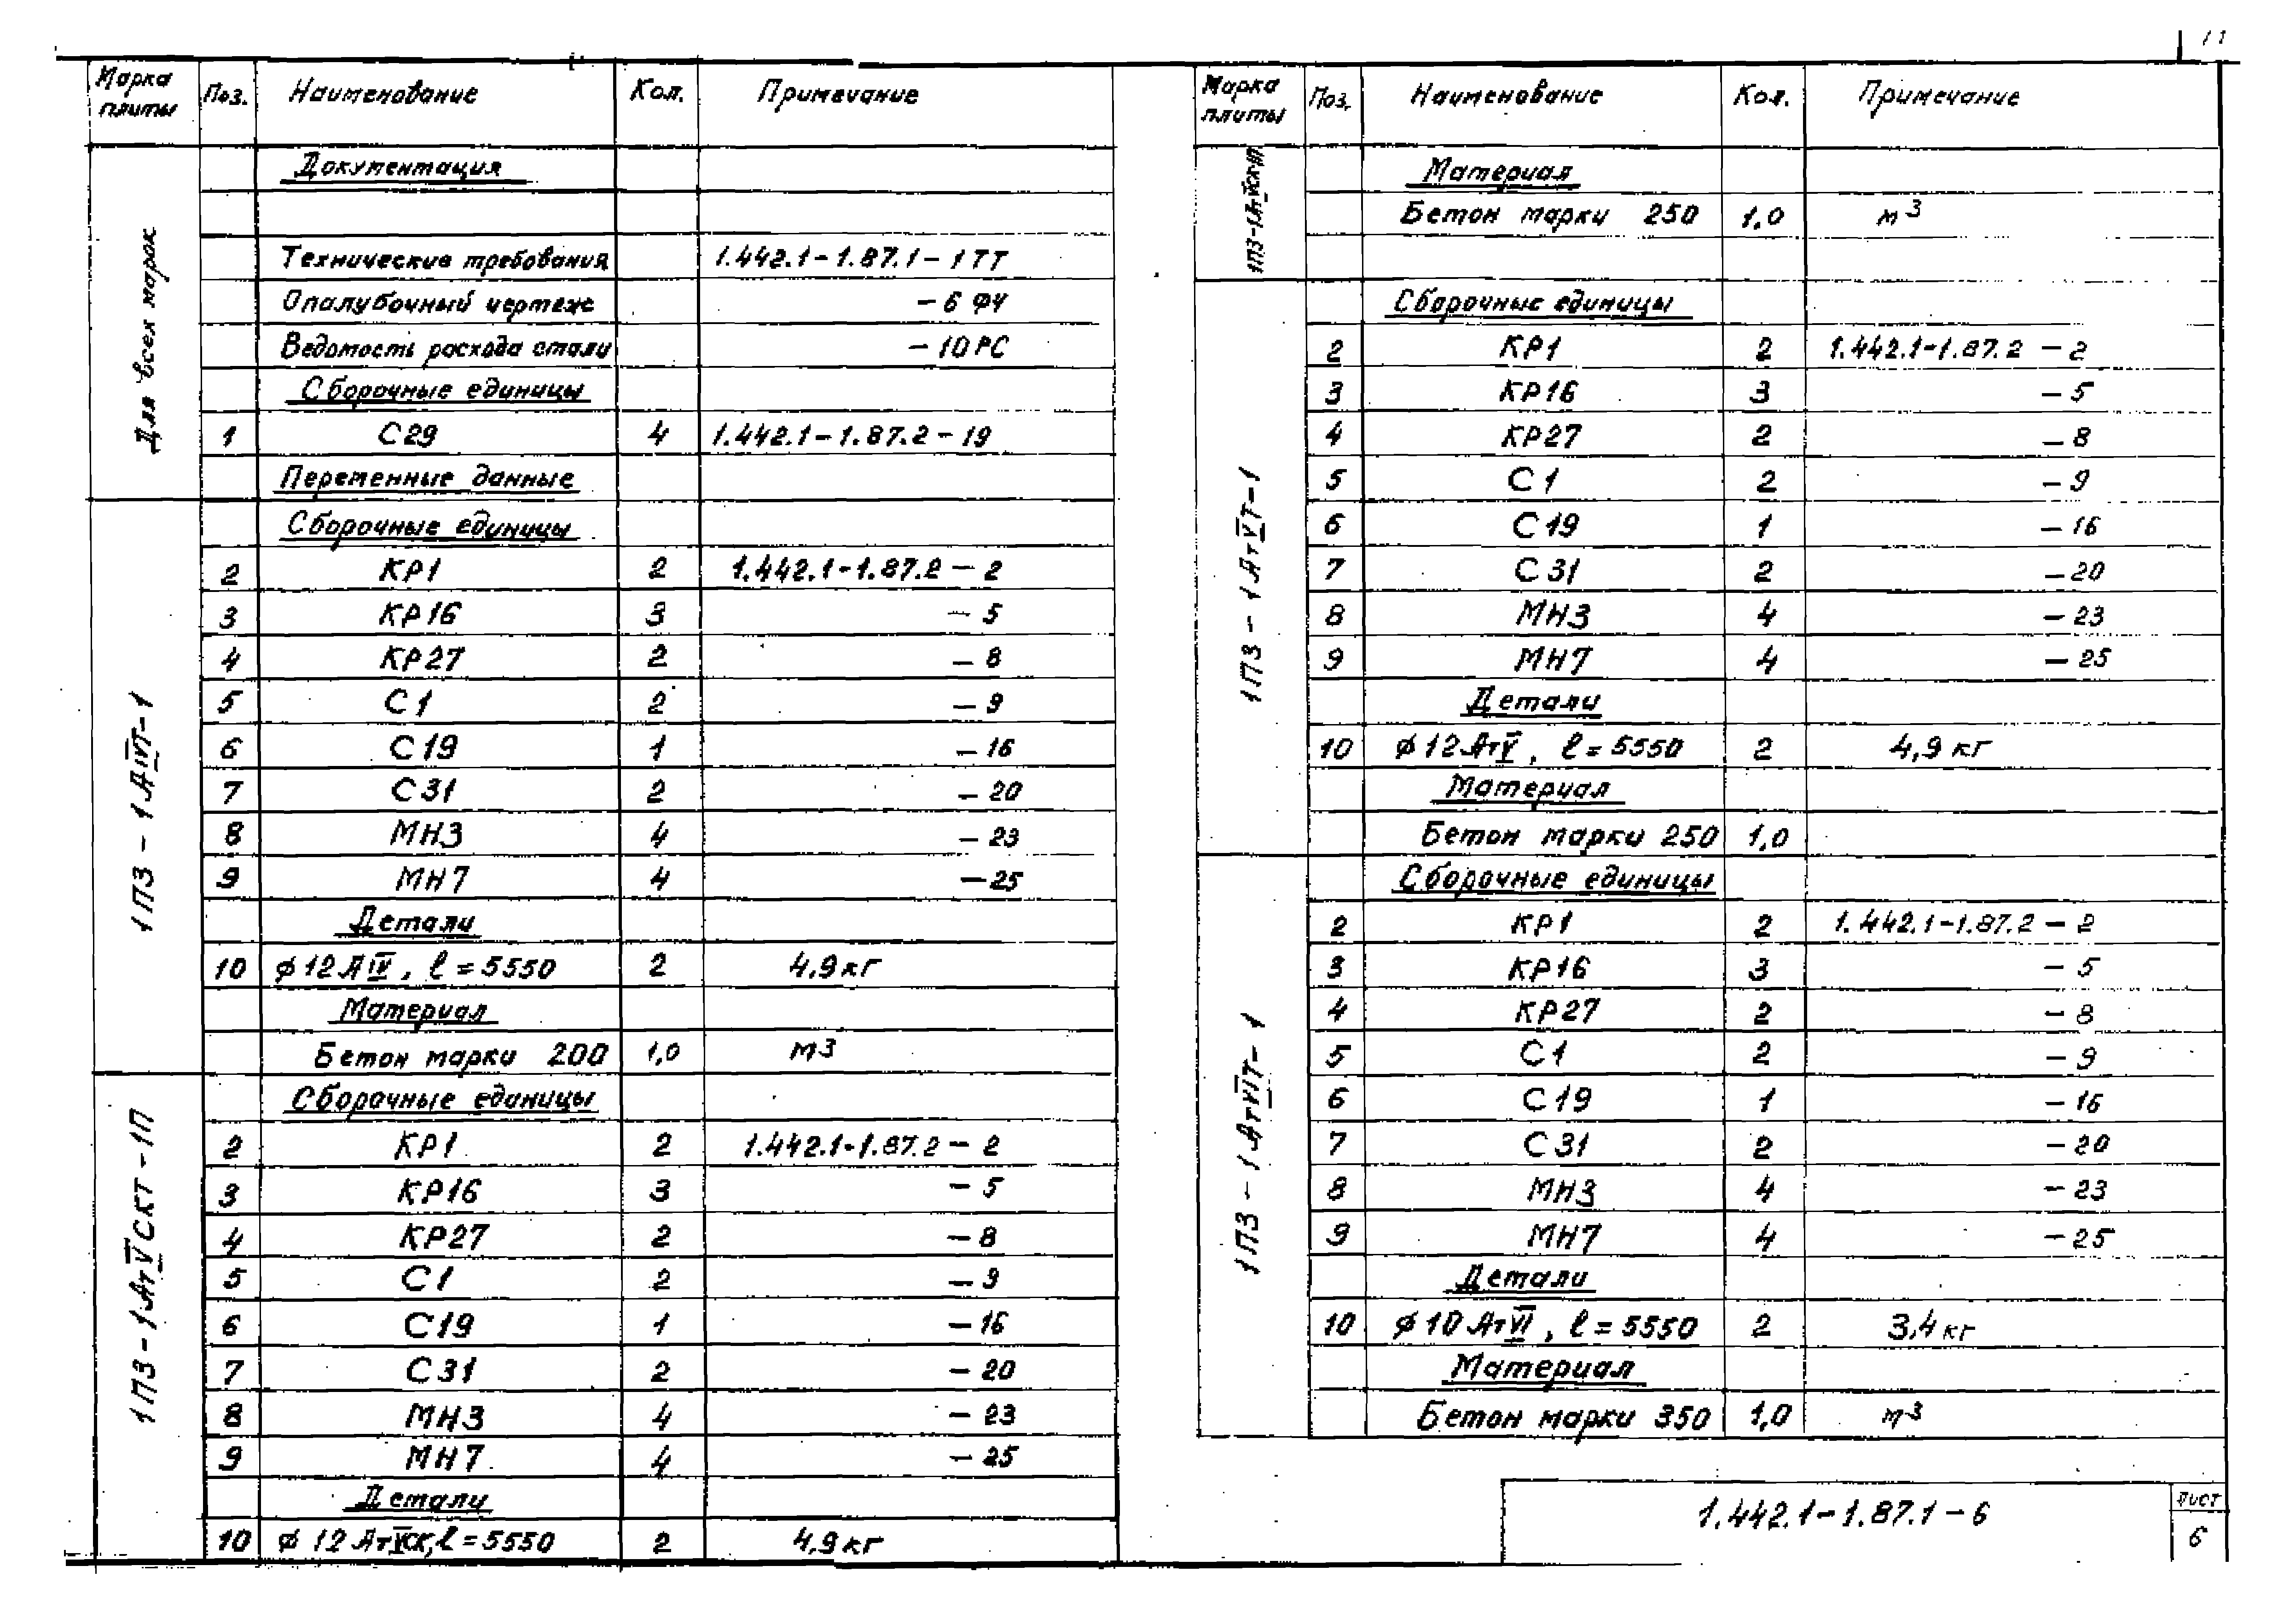 11
Марка плиты Поз. Наименование Кол. Примечание
Для всех марок
Документация
Технические требования 1.442.1-1.87.1-1ТТ
Опалубочный чертеж -6ФЧ
Ведомость расхода стали -10РС
Сборочные единицы
1 С29 4 1.442.1-1.87.2-19
Переменные данные
1П3-1АIVТ-1
Сборочные единицы
2 КР1 2 1.442.1-1.87.2-2
3 КР16 3 -5
4 КР27 2 -8
5 С1 2 -9
6 С19 1 -16
7 С31 2 -20
8 МН3 4 -23
9 МН7 4 -25
Детали
10 ⌀12АIV, ℓ=5550 2 4,9кг
Материал
Бетон марки 200 1,0 м3
1П3-1АтVСКТ-1П
Сборочные единицы
2 КР1 2 1.442.1-1.87.2-2
3 КР16 3 -5
4 КР27 2 -8
5 С1 2 -9
6 С19 1 -16
7 С31 2 -20
8 МН3 4 -23
9 МН7 4 -25
Детали
10 ⌀12АтVСК, ℓ=5550 2 4,9кг
Марка плиты Поз. Наименование Кол. Примечание
Материал
Бетон марки 250 1,0 м³
1П3-1АтVТ-1
Сборочные единицы
2 КР1 2 1.442.1-1.87.2-2
3 КР16 3 -5
4 КР27 2 -8
5 С1 2 -9
6 С19 1 -16
7 С31 2 -20
8 МН3 4 -23
9 МН7 4 -25
Детали
10 ⌀12АтV, ℓ=5550 2 4,9кг
Материал
Бетон марки 250 1,0
1П3-1АтVIТ-1
Сборочные единицы
2 КР1 2 1.442.1-1.87.2-2
3 КР16 3 -5
4 КР27 2 -8
5 С1 2 -9
6 С19 1 -16
7 С31 2 -20
8 МН3 4 -23
9 МН7 4 -25
Детали
10 ⌀10АтVI, ℓ=5550 2 3,4кг
Материал
Бетон марки 350 1,0 м³
1.442.1-1.87.1-6
Лист
6